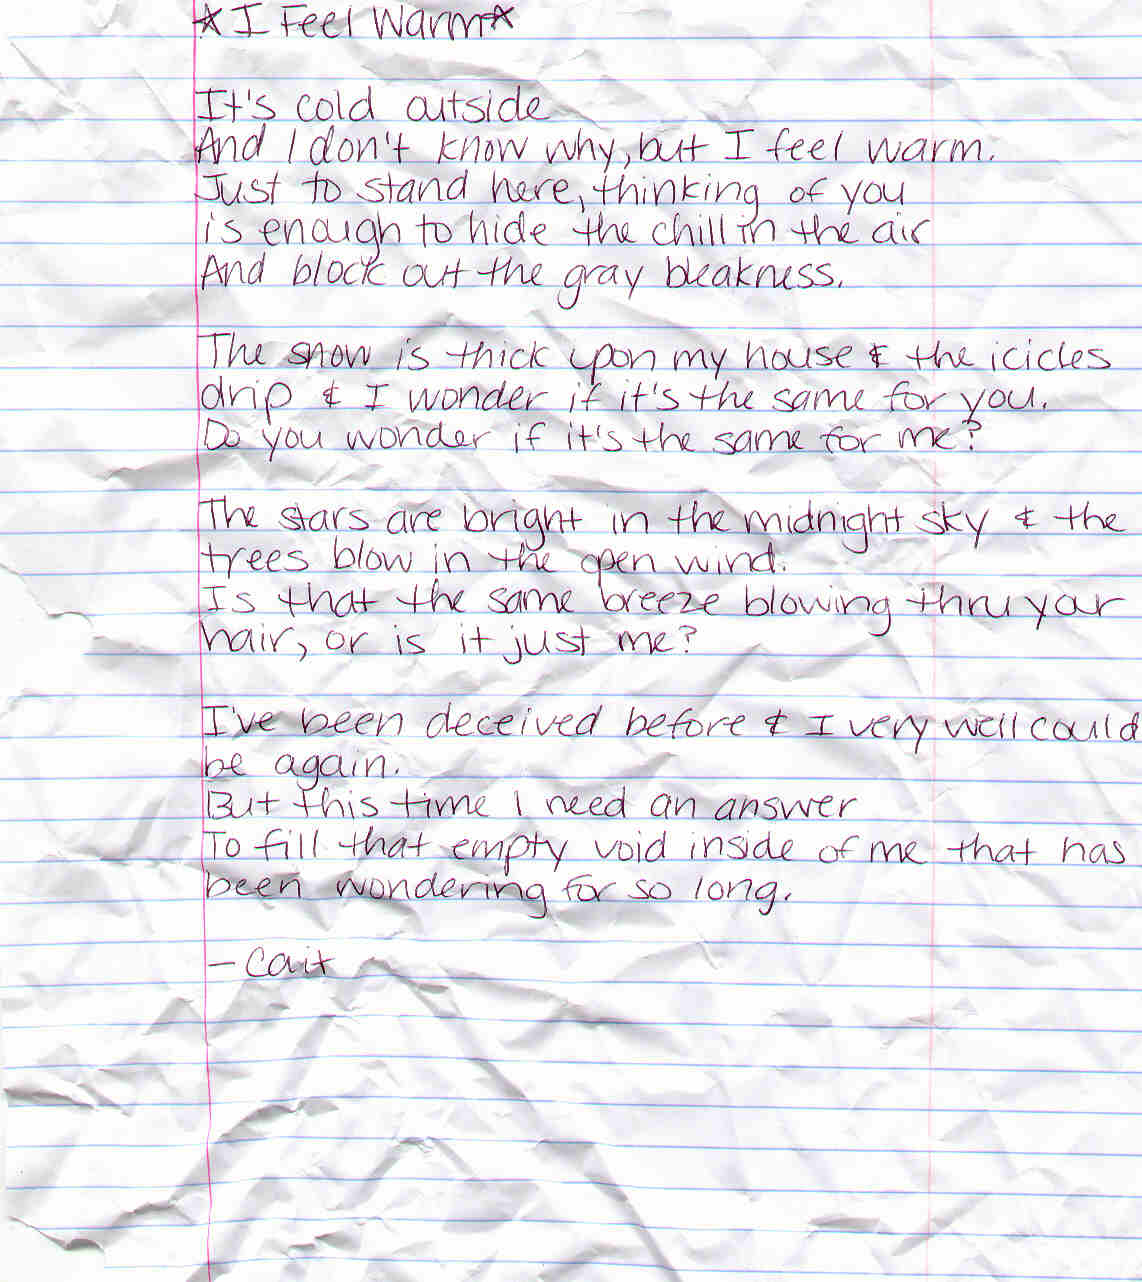 ☆ I Feel Warm ☆
It's cold outside
And I don't know why, but I feel warm.
Just to stand here, thinking of you
is enough to hide the chill in the air
And block out the gray bleakness.
The snow is thick upon my house & the icicles
drip & I wonder if it's the same for you.
Do you wonder if it's the same for me?
The stars are bright in the midnight sky & the
trees blow in the open wind.
Is that the same breeze blowing thru your
hair, or is it just me?
I've been deceived before & I very well could
be again.
But this time I need an answer
To fill that empty void inside of me that has
been wondering for so long.
- Cait